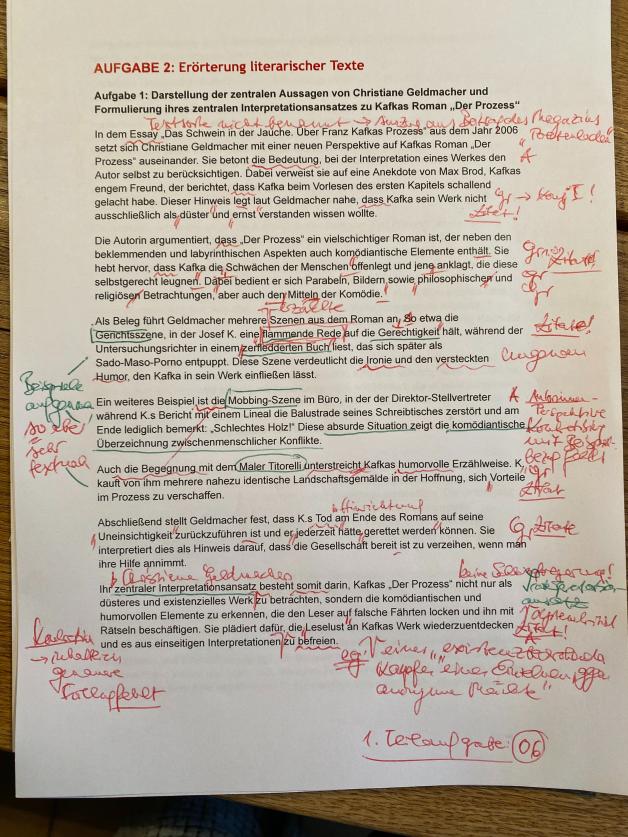 AUFGABE 2: Erörterung literarischer Texte
Aufgabe 1: Darstellung der zentralen Aussagen von Christiane Geldmacher und
Formulierung ihres zentralen Interpretationsansatzes zu Kafkas Roman „Der Prozess“
Textsorte nicht benannt → Auszug aus Beitrag des Magazins
In dem Essay „Das Schwein in der Jauche. Über Franz Kafkas Prozess“ aus dem Jahr 2006
setzt sich Christiane Geldmacher mit einer neuen Perspektive auf Kafkas Roman „Der
Prozess“ auseinander. Sie betont die Bedeutung, bei der Interpretation eines Werkes den A
Autor selbst zu berücksichtigen. Dabei verweist sie auf eine Anekdote von Max Brod, Kafkas
engem Freund, der berichtet, dass Kafka beim Vorlesen des ersten Kapitels schallend
gelacht habe. Dieser Hinweis legt laut Geldmacher nahe, dass Kafka sein Werk nicht gr → Konj I!
ausschließlich als düster und ernst verstanden wissen wollte. Zitat!
Die Autorin argumentiert, dass „Der Prozess“ ein vielschichtiger Roman ist, der neben den
beklemmenden und labyrinthischen Aspekten auch komödiantische Elemente enthält. Sie gr
hebt hervor, dass Kafka die Schwächen der Menschen offenlegt und jene anklagt, die diese
selbstgerecht leugnen. Dabei bedient er sich Parabeln, Bildern sowie philosophischen und gr
religiösen Betrachtungen, aber auch den Mitteln der Komödie. gr
Als Beleg führt Geldmacher mehrere Szenen aus dem Roman an. So etwa die
Gerichtsszene, in der Josef K. eine flammende Rede auf die Gerechtigkeit hält, während der Zitate!
Untersuchungsrichter in einem zerfledderten Buch liest, das sich später als
Sado-Maso-Porno entpuppt. Diese Szene verdeutlicht die Ironie und den versteckten
Humor, den Kafka in sein Werk einfließen lässt.
Beispiele
Ein weiteres Beispiel ist die Mobbing-Szene im Büro, in der der Direktor-Stellvertreter A
während K.s Bericht mit einem Lineal die Balustrade seines Schreibtisches zerstört und am Perspektive
Ende lediglich bemerkt: „Schlechtes Holz!“ Diese absurde Situation zeigt die komödiantische
Überzeichnung zwischenmenschlicher Konflikte.
so eher
sehr
textnah
Auch die Begegnung mit dem Maler Titorelli unterstreicht Kafkas humorvolle Erzählweise. K. gr
kauft von ihm mehrere nahezu identische Landschaftsgemälde in der Hoffnung, sich Vorteile Zitat
im Prozess zu verschaffen.
Hinrichtung
Abschließend stellt Geldmacher fest, dass K.s Tod am Ende des Romans auf seine
Uneinsichtigkeit zurückzuführen ist und er jederzeit hätte gerettet werden können. Sie Gr Zitate
interpretiert dies als Hinweis darauf, dass die Gesellschaft bereit ist zu verzeihen, wenn man
ihre Hilfe annimmt.
Christiane Geldmachers
Ihr zentraler Interpretationsansatz besteht somit darin, Kafkas „Der Prozess“ nicht nur als
düsteres und existenzielles Werk zu betrachten, sondern die komödiantischen und
humorvollen Elemente zu erkennen, die den Leser auf falsche Fährten locken und ihn mit
Rätseln beschäftigen. Sie plädiert dafür, die Leselust an Kafkas Werk wiederzuentdecken Zitat!
und es aus einseitigen Interpretationen zu befreien. A
1. Teilaufgabe: 06